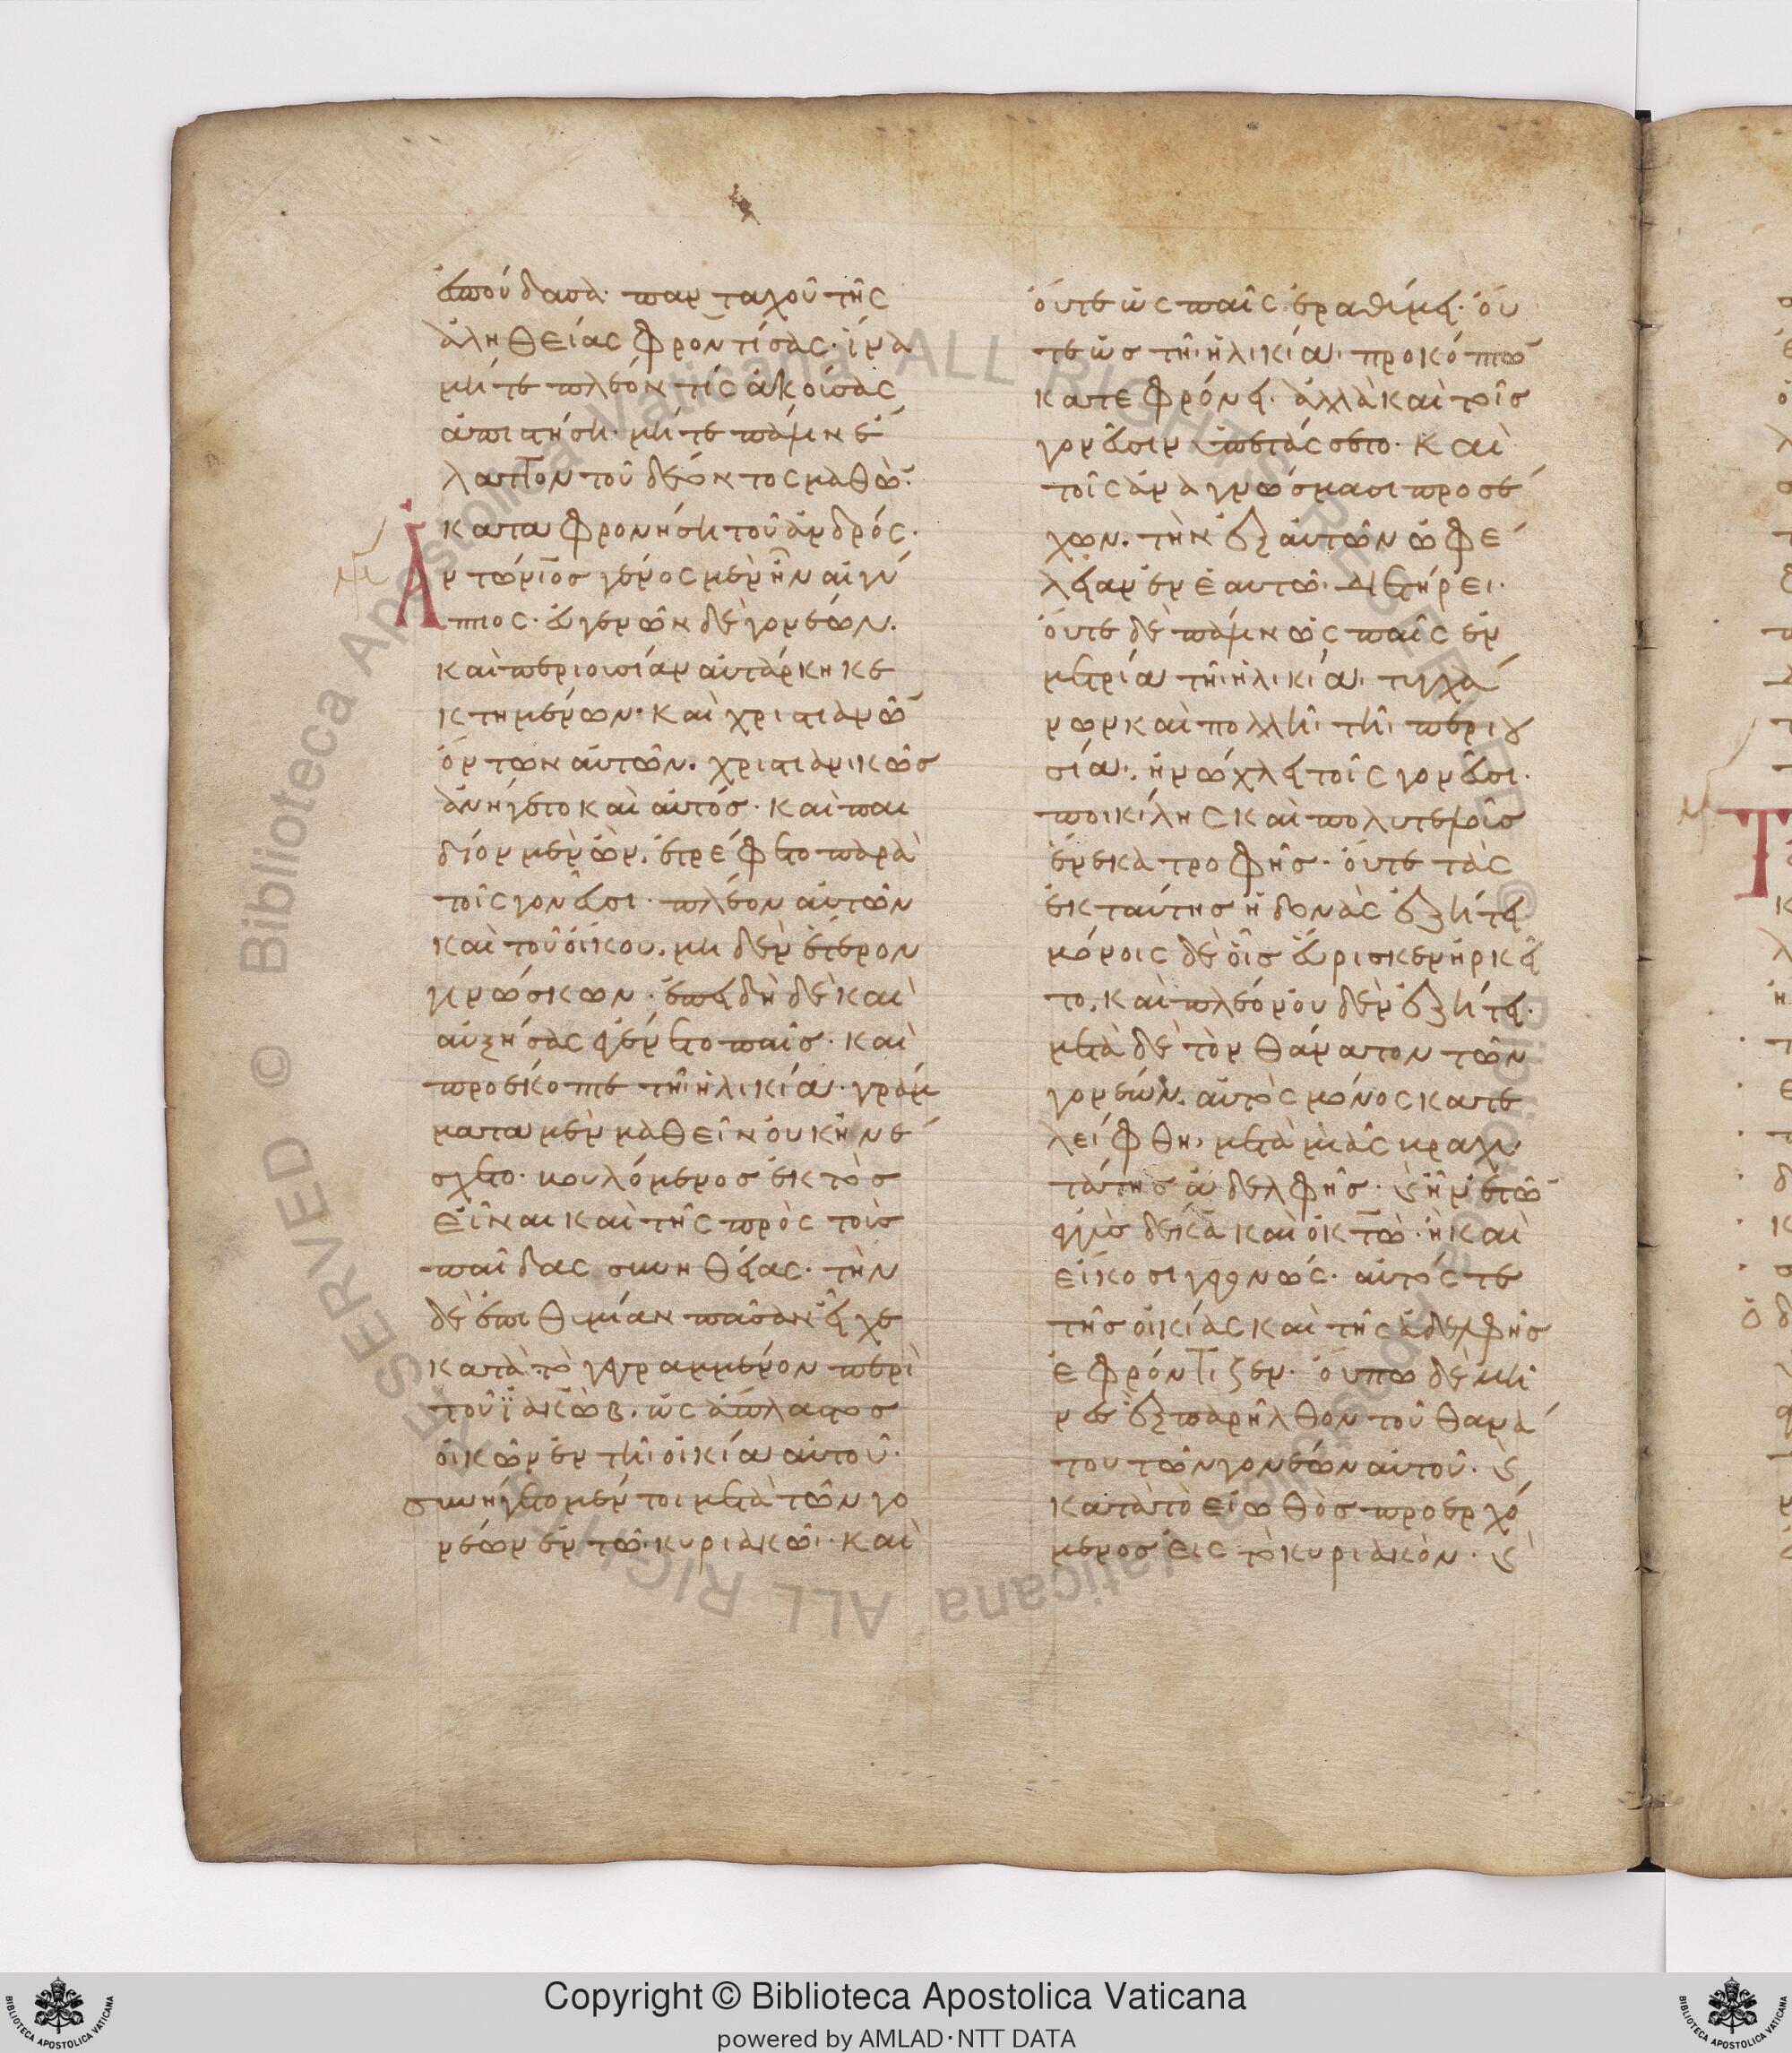 ἐσπούδασα· πανταχοῦ τῆς
ἀληθείας φροντίσας· ἵνα
μήτε πλέον τίς ἀκούσας
ἀπιστήση· μήτε πάλιν ἔ
λαττον τοῦ δέοντος μαθὼ̅·
καταφρονήση τοῦ ἀνδρός·
Ἀντώνιος γένος μὲν ἦν αἰγύ
πτιος· εὐγενῶν δὲ γονέων.
καὶ περιουσίαν αὐτάρκη κε
κτημένων· καὶ χριστιανῶ̅
ὄντων αὐτῶν. χριστιανικῶς
ἀνήγετο καὶ αὐτός· καὶ παι
δίον μὲν ὢν. ἐτρέφετο παρὰ
τοῖς γονεῦσι· πλέον αὐτῶν
καὶ τοῦ οἴκου. μηδὲν ἕτερον
γινώσκων· ἐπειδὴ δὲ καὶ
αὐξήσας ἐγένετο παῖς· καὶ
προέκοπτε τῆ ἡλικία· γράμ
ματα μὲν μαθεῖν οὐκ ἠνέ
σχετο· βουλόμενος ἐκτὸς
εἶναι καὶ τῆς πρὸς τοὺς
παῖδας συνηθείας· τὴν
δὲ ἐπιθυμίαν πᾶσαν εἶχε
κατὰ τὸ γεγραμμένον περὶ
τοῦ ϊακὼβ. ὡς ἄπλαστος
οἰκῶν ἐν τῆ οἰκία αὐτοῦ·
συνήγετο μέν τοι μετὰ τῶν γο
νέων ἐν τῶ κυριακῶ· καὶ
οὔτε ὡς παῖς ἐραθύμει· οὔ
τε ὡς τῆ ἡλικία προκόπτω̅
κατεφρόνει· ἀλλὰ καὶ τοῖς
γονεῦσιν ὑπετάσσετο· καὶ
τοῖς ἀναγνώσμασι προσέ
χων. τὴν ἐξ αὐτῶν ὠφέ
λειαν ἐν ἑαυτῶ διετήρει·
οὔτε δὲ πάλιν ὡς παῖς ἐν
μετρία τῆ ἡλικία τυγχά
νων καὶ πολλῆ τῆ περιου
σία. ἠνώχλει τοῖς γονεῦσι·
ποικίλης καὶ πολυτελοῦς
ἕνεκα τροφῆς· οὔτε τὰς
ἐκ ταύτης ἡδονὰς ἐζήτει·
μόνοις δὲ οἷς εὕρισκεν ἠρκεῖ
το. καὶ πλέον οὐδὲν ἐζήτει·
μετὰ δὲ τὸν θάνατον τῶν
γονέων. αὐτὸς μόνος κατε
λείφθη. μετὰ μιᾶς βραχυ
τάτης ἀδελφῆς· ϗ ἦν ἐτῶ̅
ἐγγὺς δέκα καὶ ὀκτὼ· ἢ καὶ
εἴκοσι γεγονώς· αὐτός τε
τῆς οἰκίας καὶ τῆς ἀδελφῆς
ἐφρόντιζεν· οὔπω δὲ μῆ
νες ἓξ παρῆλθον τοῦ θανά
του τῶν γονέων αὐτοῦ· ϗ
κατὰ τὸ εἰωθὸς προερχό
μενος εἰς τὸ κυριακὸν· ϗ
Copyright © Biblioteca Apostolica Vaticana
powered by AMLAD·NTT DATA